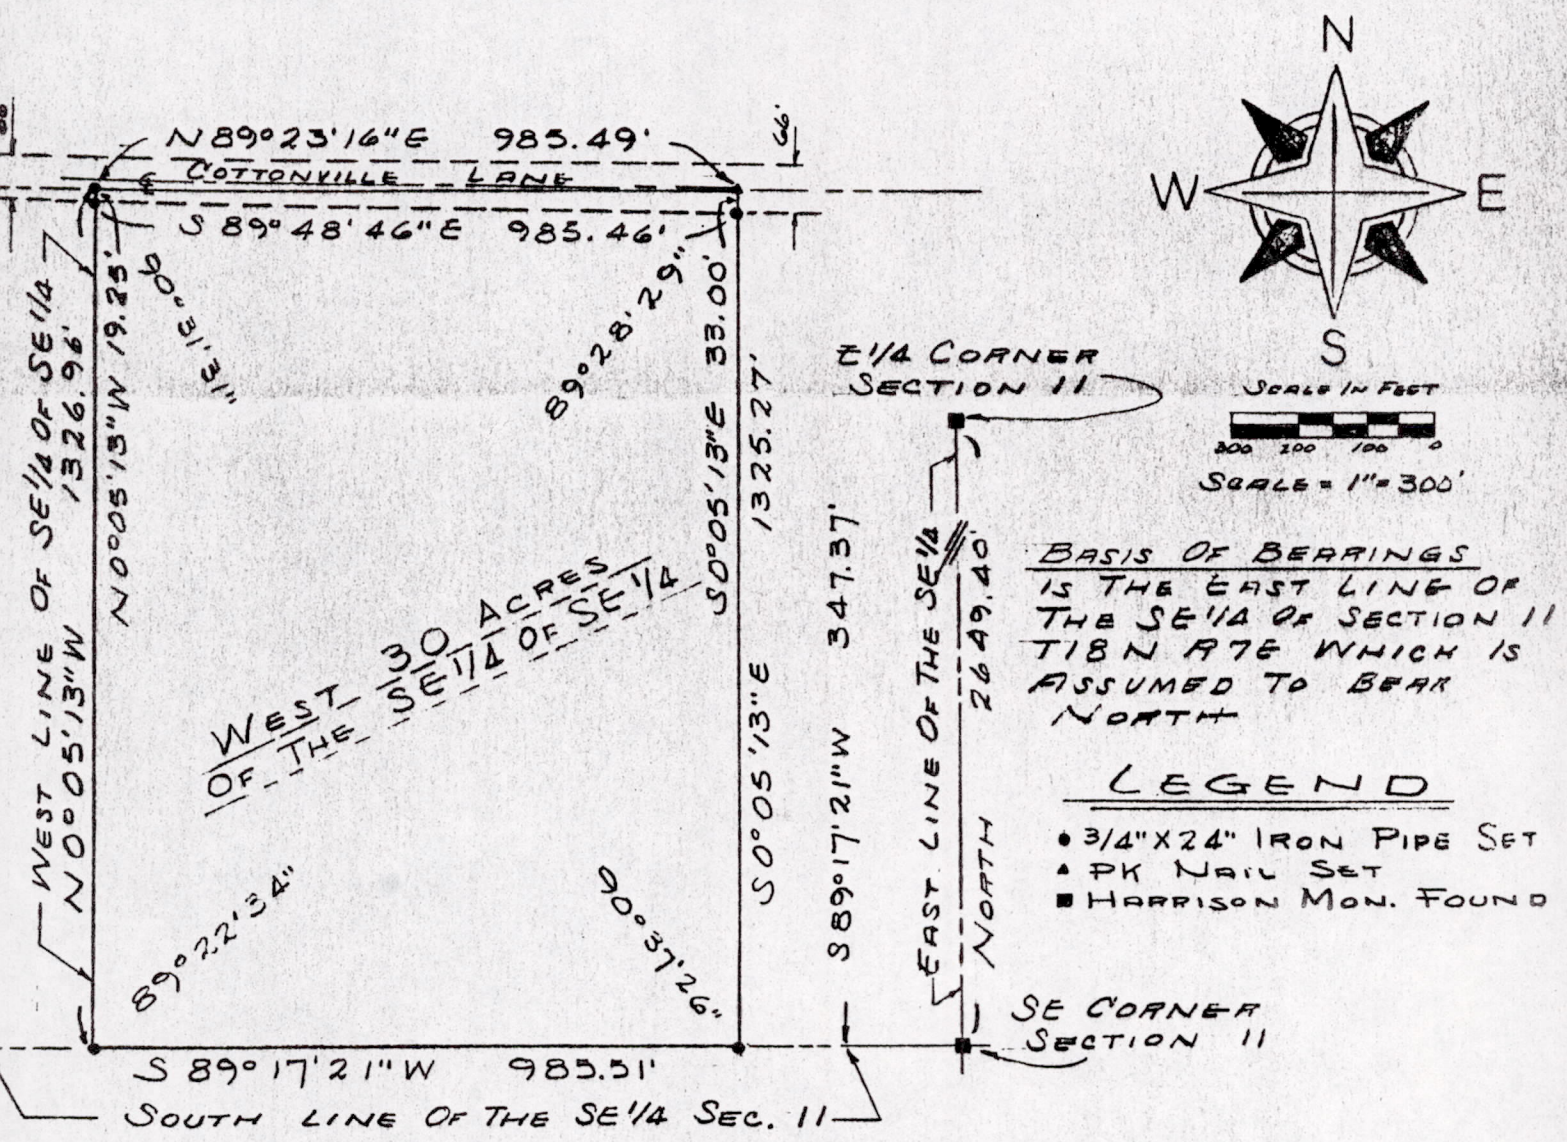 N
W
E
S
N 89° 23' 16" E 985.49'
66'
COTTONVILLE LANE
S 89° 48' 46" E 985.46'
WEST LINE OF SE 1/4 OF SE 1/4
N 0° 05' 13" W 1326.96'
N 0° 05' 13" W 19.25'
90° 13' 31"
89° 28' 29"
S 0° 05' 13" E 33.00'
S 0° 05' 13" E 1325.27'
WEST 30 ACRES
OF THE SE 1/4 OF SE 1/4
89° 22' 34"
90° 37' 26"
S 89° 17' 21" W 985.51'
SOUTH LINE OF THE SE 1/4 SEC. 11
S 89° 17' 21" W 347.37'
EAST LINE OF THE SE 1/4
NORTH 2649.40'
E 1/4 CORNER
SECTION 11
SE CORNER
SECTION 11
SCALE IN FEET
300 200 100 0
SCALE = 1" = 300'
BASIS OF BEARINGS
IS THE EAST LINE OF
THE SE 1/4 OF SECTION 11
T18N R7E WHICH IS
ASSUMED TO BEAR
NORTH
LEGEND
● 3/4" X 24" IRON PIPE SET
▲ PK NAIL SET
■ HARRISON MON. FOUND